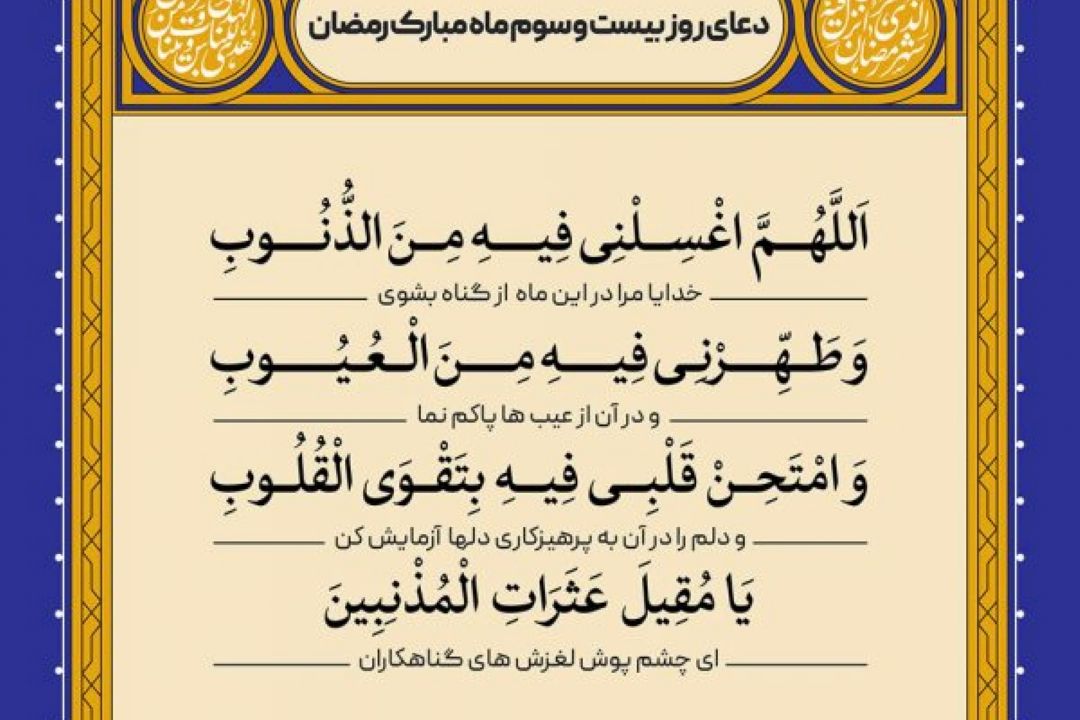 دعای روز بیست و سوم ماه مبارک رمضان
اَللَّهُمَّ اغْسِلْنِی فِیهِ مِنَ الذُّنُوبِ
خدایا مرا در این ماه از گناه بشوی
وَ طَهِّرْنِی فِیهِ مِنَ الْعُیُوبِ
و در آن از عیب ها پاکم نما
وَ امْتَحِنْ قَلْبِی فِیهِ بِتَقْوَی الْقُلُوبِ
و دلم را در آن به پرهیزکاری دلها آزمایش کن
یَا مُقِیلَ عَثَرَاتِ الْمُذْنِبِینَ
ای چشم پوش لغزش های گناهکاران